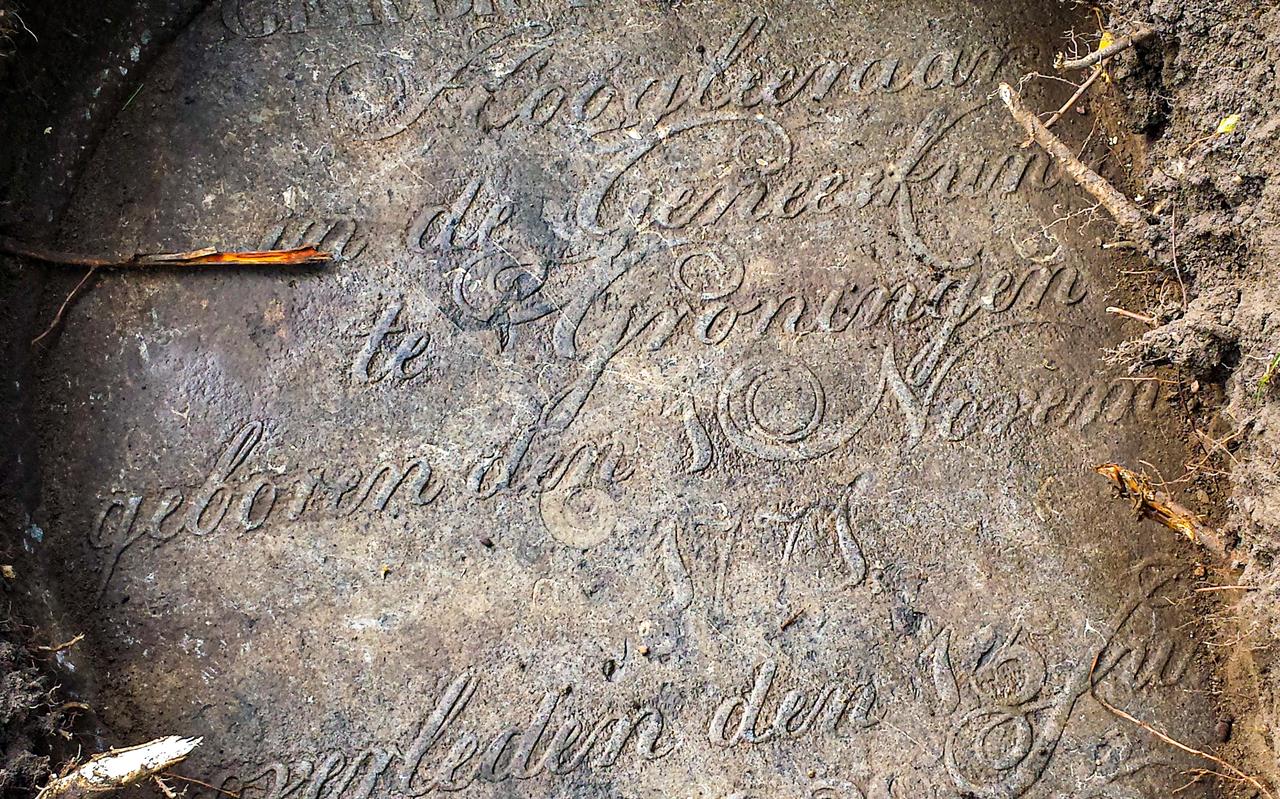 Hoogleeraar
in de Geneeskun
te Groningen
geboren den 10 Novem
1771
overleden den 16 Jul